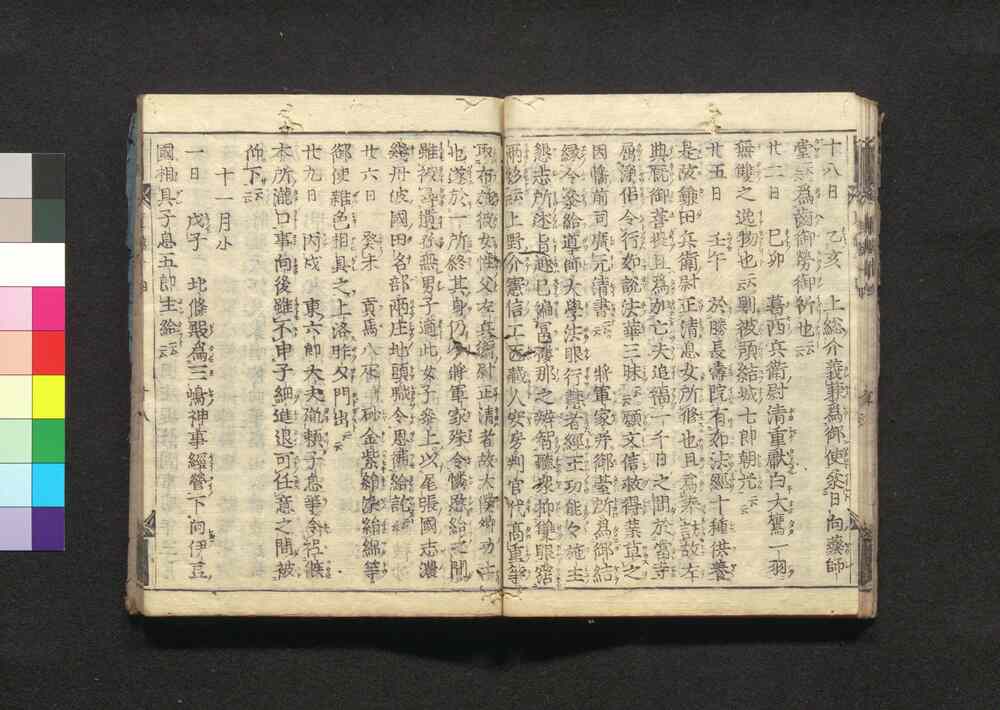 十八日　乙亥　上総介義兼為御使参日向薬師
堂云云為歯御労御祈也云云
廿二日　己卯　葛西兵衛尉清重献白大鷹一羽
無雙之逸物也云云則被預結城七郎朝光云云
廿五日　壬午　於勝長壽院有如法経十種供養
是故鎌田兵衛尉正清息女所修也且為奉訪故左
典厩御菩提且為亡夫追福一千日之間於当寺
屈浄侶令行如説法華三昧云云願文信救得業草之
因幡前司廣元清書云云　将軍家并御臺所為御結
縁令参給導師大學法眼行慧者経王功能々施主
懇志所述
両衫云云上野介憲信工匠蔵人安房判官代高重等
取布施彼女性父左兵衛尉正清者故大僕卿功士
也遂於一所終其身仍今将軍家殊令憐愍給之間
雖被尋遺孤無男子適此女子参上以尾張國志濃
幾丹波國田名部両庄地頭職令恩補給云云
廿六日　癸未　貢馬八疋砂金紫絹染絹綿等
御使雑色相具之上洛昨夕門出云云
廿九日　丙戌　東六郎大夫胤頼子息等令祗候
本所瀧口事向後雖不申子細進退可任意之間被
仰下云云
十一月小
一日　戊子　北條殿為三嶋神事経營下向伊豆
國相具子息五郎主給云云